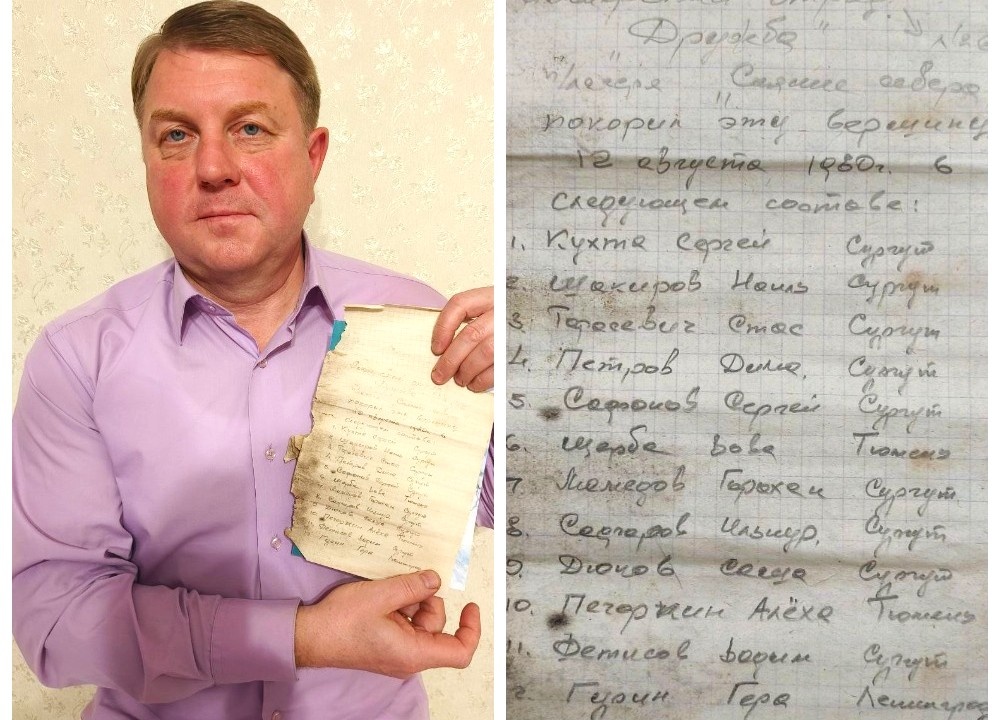 Дружба"
п/лагеря "Сияние севера
покорил эту вершину
12 августа 1980г. в
следующем составе:
1. Кухта Сергей Сургут
2. Шакиров Наиль Сургут
3. Тарасевич Стас Сургут
4. Петров Дима, Сургут
5. Сафонов Сергей Сургут
6. Щерба Вова Тюмень
7. Мамедов Горохан Сургут
8. Саттаров Ильнур, Сургут
9. Дюков Саша Сургут
10. Печоркин Алёха Тюмень
11. Фетисов Вадим Сургут
Гурин Гера Ленинград